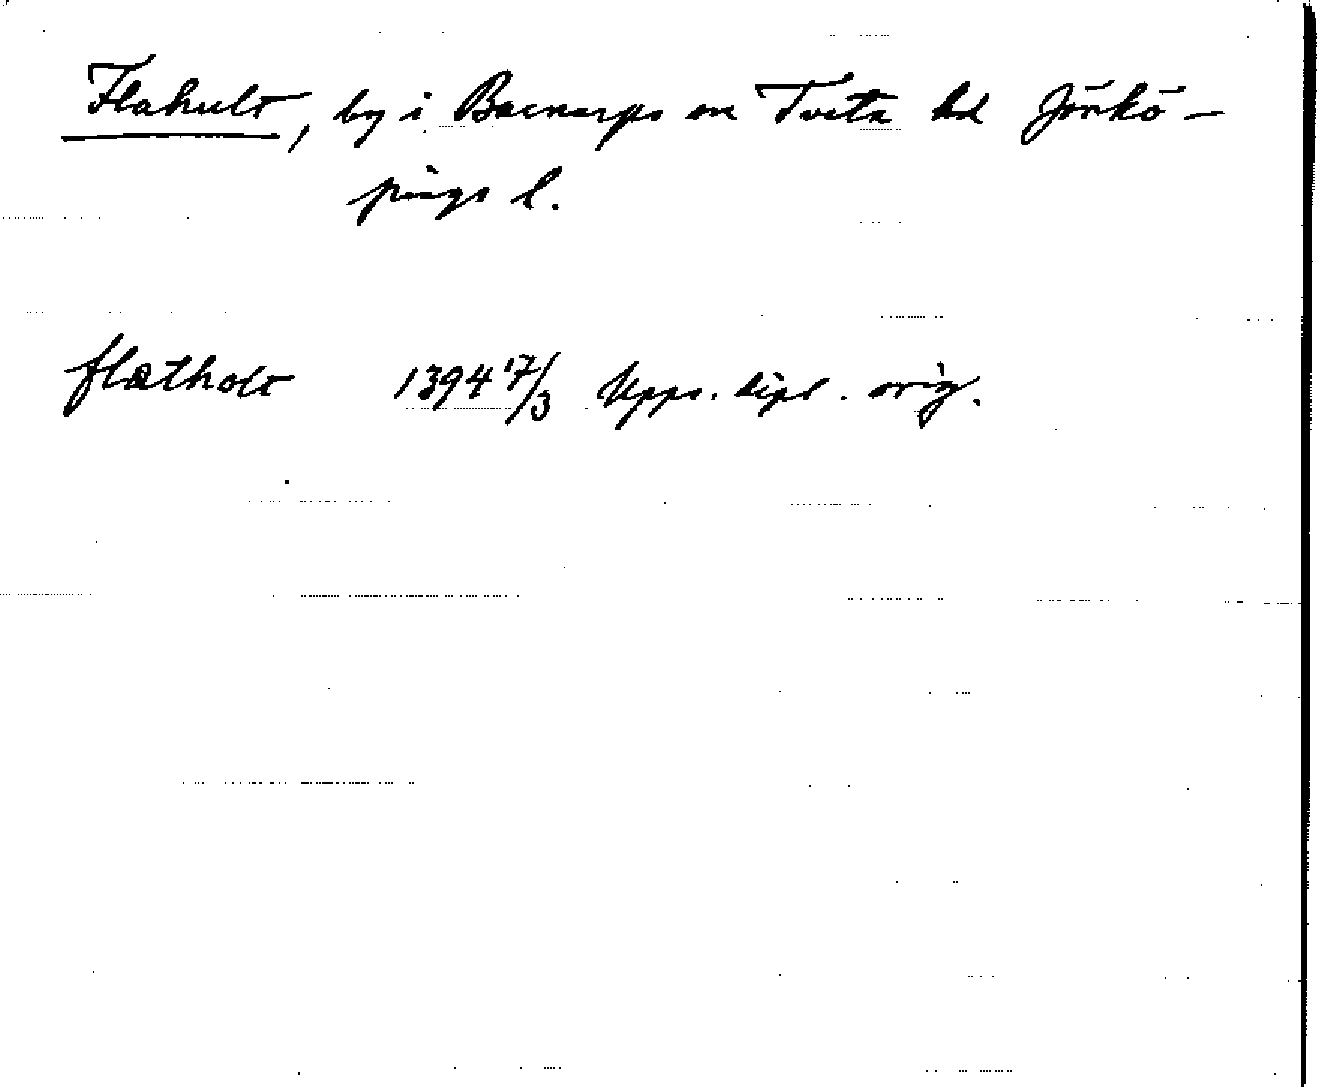 Flahult, by i Barnarps sn Tveta hd Jönkö-
pings l.
flatholt 1394 17/3 Upps. dipl. orig.